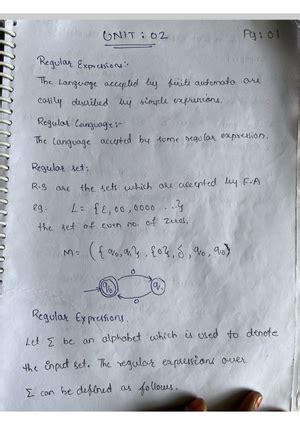 UNIT : 02 Pg : 01
Regular Expressions:-
The Language accepted by finite automata are
easily described by simple expressions.
Regular Language:-
The language accepted by some regular expression.
Regular set:
R.S are the sets which are accepted by F.A
eg. L = {ε, 00, 0000 ...}
the set of even no. of zeros.
M = ({q0, q1}, {0}, δ, q0, q0)
0
q0 q1
0
Regular Expressions.
Let Σ be an alphabet which is used to denote
the input set. The regular expressions over
Σ can be defined as follows.